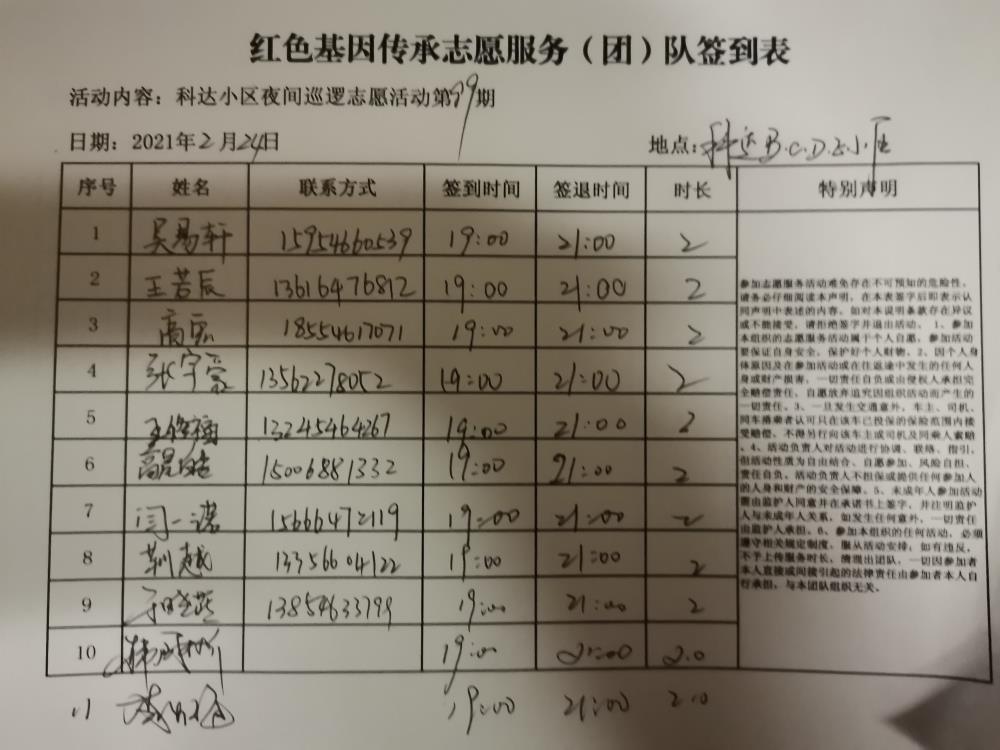 红色基因传承志愿服务（团）队签到表
活动内容：科达小区夜间巡逻志愿活动第99期
日期：2021年2月24日 地点：科达B.C.D.E小区
序号 姓名 联系方式 签到时间 签退时间 时长 特别声明
1 吴易轩 15954660539 19:00 21:00 2
2 王若辰 13616476812 19:00 21:00 2
3 高 18554617071 19:00 21:00 2
4 张宇豪 13562278052 19:00 21:00 2
5 王 福 13245464267 19:00 21:00 2
6 高 15006881332 19:00 21:00 2
7 闫一诺 15666472119 19:00 21:00 2
8 越 13356604122 19:00 21:00 2
9 燕 13854633799 19:00 21:00 2
10 19:00 21:00 2.0
11 19:00 21:00 2.0
参加志愿服务活动难免存在不可预知的危险性，
请务必仔细阅读本声明，在本表签字后即表示认
同声明中表述的内容，如对本说明条款存在异议
或不能接受，请拒绝签字并退出活动。1、参加
本组织的志愿服务活动属于个人自愿，参加活动
要保证自身安全，保护好个人财物。2、因个人身
体原因及在参加活动或在往返途中发生的任何人
身或财产损害，一切责任自负或由侵权人承担完
全赔偿责任，自愿放弃追究因组织活动而产生的
一切责任。3、一旦发生交通意外，车主、司机、
同车搭乘者认可只在该车已投保的保险范围内接
受赔偿，不得另行向该车主或司机及同乘人索赔
。4、活动负责人对活动进行协调、联络、指引，
但活动性质为自由结合、自愿参加、风险自担、
责任自负，活动负责人不担保或提供任何参加人
的人身和财产的安全保障。5、未成年人参加活动
需由监护人同意并在承诺书上签字，并注明监护
人与未成年人关系，如发生任何意外，一切责任
由监护人承担。6、参加本组织的任何活动，必须
遵守相关规定制度，服从活动安排，如有违反，
不予上传服务时长，清理出团队，一切因参加者
本人直接或间接引起的法律责任由参加者本人自
行承担，与本团队组织无关。